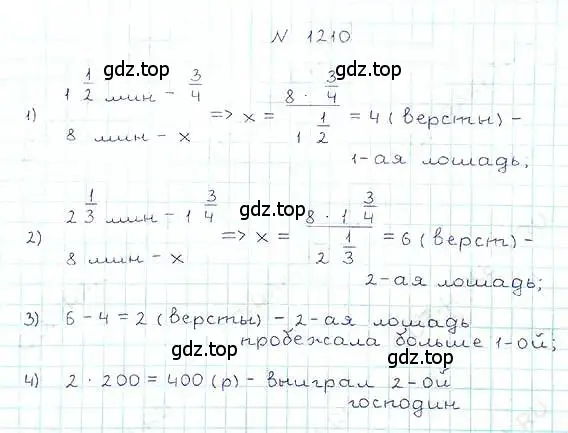 N 1210
gdz.top
1) 1 1/2 мин - 3/4 => x = (8 · 3/4)/(1 1/2) = 4 (версты) -
8 мин - x
1-ая лошадь;
gdz.top
2) 2 1/3 мин - 1 3/4 => x = (8 · 1 3/4)/(2 1/3) = 6 (верст) -
8 мин - x
2-ая лошадь;
3) 6 - 4 = 2 (версты) - 2-ая лошадь
пробежала больше 1-ой;
gdz.top
4) 2 · 200 = 400 (р) - выиграл 2-ой
господин
gdz.top